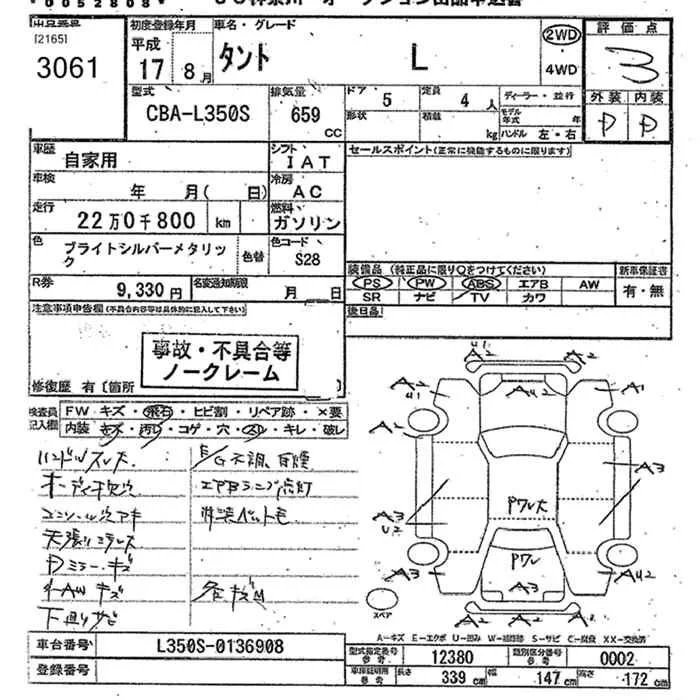 [2165]
3061
初度登録年月
平成
17 8月
車名・グレード
タント L
2WD
4WD
評価点
3
外装 内装
D D
型式
CBA-L350S
排気量
659
CC
ドア 5
定員 4 人
ディーラー・並行
形状
積載 kg
モデル年式 年
ハンドル 左・右
車歴
自家用
シフト
IAT
セールスポイント(正常に機能するものに限ります)
車検
年 月( 日)
冷房
AC
走行
22万0千800 km
燃料
ガソリン
色
ブライトシルバーメタリック
色替
色コード
S28
装備品 (純正品に限り○をつけてください)
新車保証書
PS PW ABS エアB AW
有・無
SR ナビ TV カワ
R券
9,330円
名変通知期限
月 日
後日品
注意事項申告欄(不具合内容等は具体的に記入して下さい)
事故・不具合等
ノークレーム
修復歴 有〔箇所
検査員記入欄
FW キズ・飛石・ヒビ割・リペア跡・×要
内装 キズ・汚れ・コゲ・穴・スレ・キレ・破レ
ハンドルスレ大
E/G不調、白煙
オーディオ欠次
エアBランプ点灯
内装ペット毛
天張リ
Dミラーキズ
AWキズ
下廻りサビ
A2 U1 A2
A2 U1 A2 A1
A2
A3
A3 U2
Pワレ大
Pワレ
A3
A3 AU2
A2 A2
スペア
A-キズ E-エクボ U-凹み W-補修跡 S-サビ C-腐食 XX-交換済
車台番号
L350S-0136908
登録番号
型式指定番号
参考
12380
類別区分番号
参考
0002
車庫証明用
参考
長さ 339 cm
幅 147 cm
高さ 172 cm